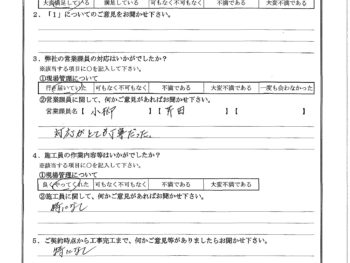 大変満足している 満足している 可もなく不可もなく 不満である 大変不満である
2.「1」についてのご意見をお聞かせ下さい。
3.弊社の営業課員の対応はいかがでしたか?
※該当する項目に○を記入して下さい。
①現場管理について
行き届いていた 可もなく不可もなく 不満である 大変不満である 一度も会わなかった
②営業課員に関して、何かご意見があればお聞かせ下さい。
営業課員名【 小柳 】【 芹田 】【 】
対応がとても丁寧だった。
4.施工員の作業内容等はいかがでしたか?
※該当する項目に○を記入して下さい。
①現場管理について
良くやってくれた 可もなく不可もなく 不満である 大変不満である
②施工員に関して、何かご意見があればお聞かせ下さい。
特になし
5.ご契約時点から工事完工まで、何かご意見等がありましたらお聞かせ下さい。
特になし